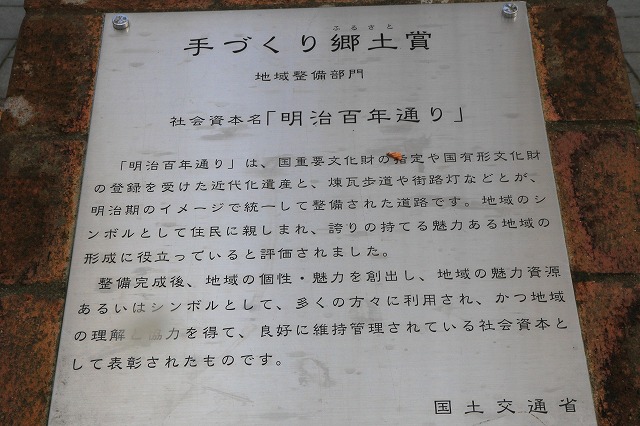 ふるさと
手づくり郷土賞
地域整備部門
社会資本名「明治百年通り」
「明治百年通り」は、国重要文化財の指定や国有形文化財
の登録を受けた近代化遺産と、煉瓦歩道や街路灯などとが、
明治期のイメージで統一して整備された道路です。地域のシ
ンボルとして住民に親しまれ、誇りの持てる魅力ある地域の
形成に役立っていると評価されました。
整備完成後、地域の個性・魅力を創出し、地域の魅力資源
あるいはシンボルとして、多くの方々に利用され、かつ地域
の理解と協力を得て、良好に維持管理されている社会資本と
して表彰されたものです。
国土交通省